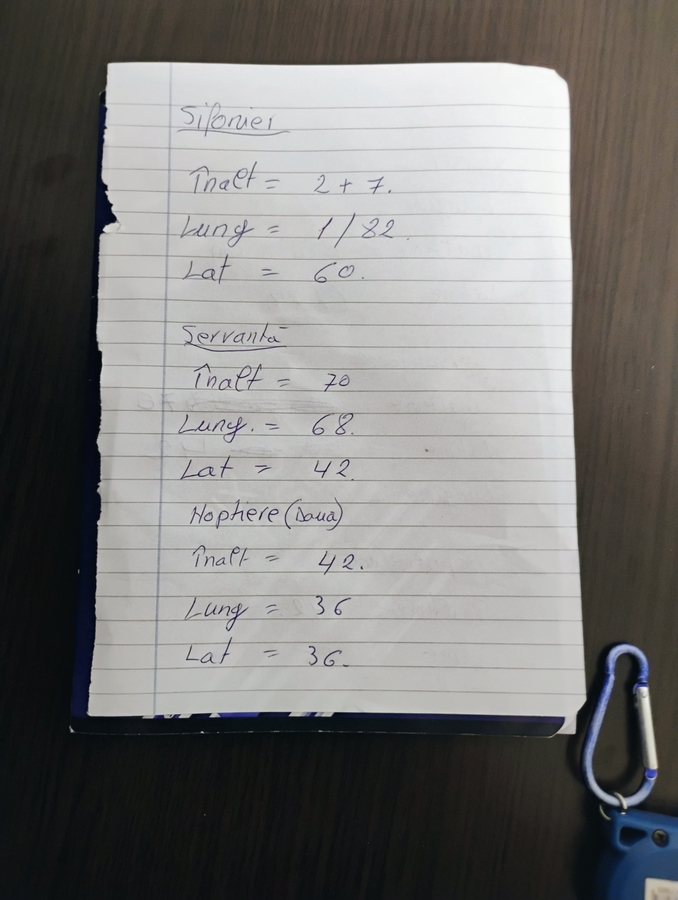 Sifonier
Înalt = 2 + 7.
Lung = 1/82.
Lat = 60.
Servantă
Înalt = 70
Lung. = 68.
Lat = 42.
Noptiere (Două)
Înalt = 42.
Lung = 36
Lat = 36.